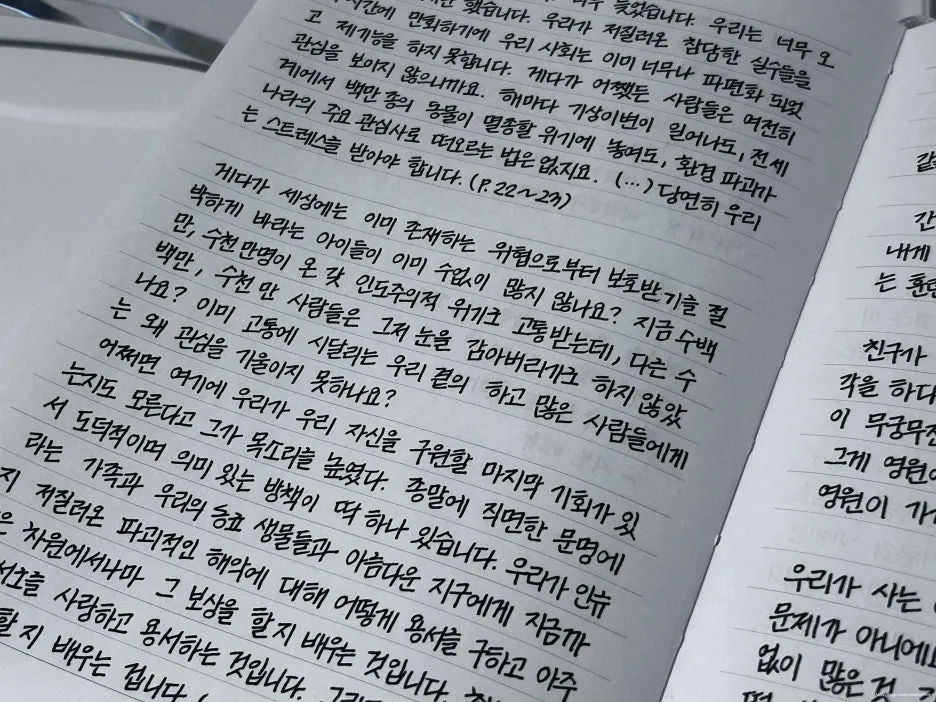 했습니다. 우리가 저질러온 참담한 실수들을
만회하기에 우리 사회는 이미 너무나 파편화 되었
고 제기능을 하지 못합니다. 게다가 어쨌든 사람들은 여전히
관심을 보이지 않으니까요. 해마다 기상이변이 일어나도, 전세
계에서 백만 종의 동물이 멸종할 위기에 놓여도, 환경 파괴가
나라의 주요 관심사로 떠오르는 법은 없지요. (…) 당연히 우리
는 스트레스를 받아야 합니다. (P. 22~23)
게다가 세상에는 이미 존재하는 위협으로부터 보호받기를 절
박하게 바라는 아이들이 이미 수없이 많지 않나요? 지금 수백
만, 수천 만명이 온 갖 인도주의적 위기로 고통받는데, 다른 수
백만, 수천 만 사람들은 그저 눈을 감아버리기로 하지 않았
나요? 이미 고통에 시달리는 우리 곁의 하고 많은 사람들에게
는 왜 관심을 기울이지 못하나요?
어쩌면 여기에 우리가 우리 자신을 구원할 마지막 기회가 있
는지도 모른다고 그가 목소리를 높였다. 종말에 직면한 문명에
서 도덕적이며 의미 있는 방책이 딱 하나 있습니다. 우리가 인류
라는 가족과 우리의 동료 생물들과 아름다운 지구에게 지금까
지 저질러온 파괴적인 해악에 대해 어떻게 용서를 구하고 아주
차원에서나마 그 보상을 할지 배우는 것입니다.
서로를 사랑하고 용서하는 것입니다.
할지 배우는 겁니다.
간
내게
는 훈련
친구가
각을 하다
이 무궁무진
그게 영원
영원이
우리가 사는
문제가 아니에요
없이 많은 것